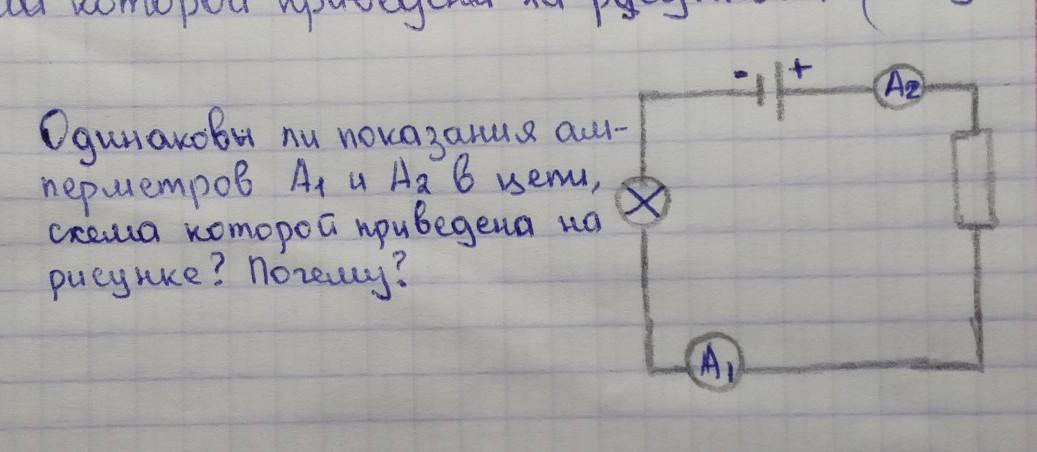 которой приведена на
- +
A2
Одинаковы ли показания ам-
перметров А1 и А2 в цепи,
схема которой приведена на
рисунке? Почему?
A1